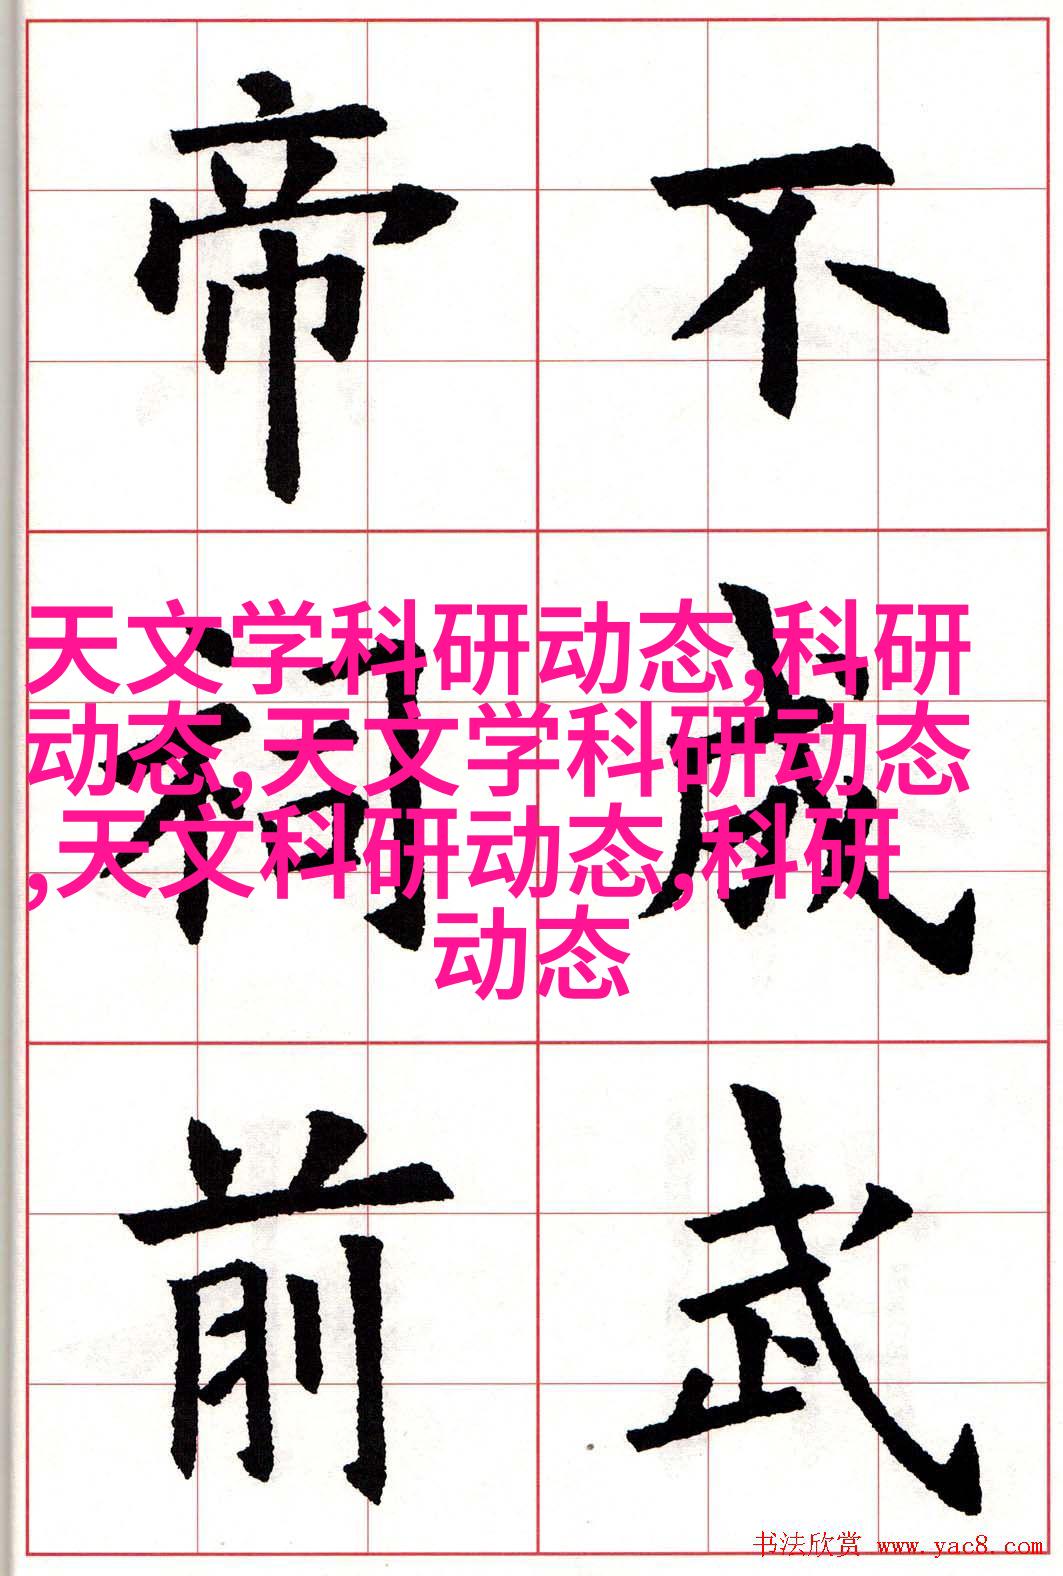 帝 不
祠 咸
前 武
天文学科研动态,科研
动态,天文学科研动态
,天文科研动态,科研
动态
书法欣赏 www.yac8.com